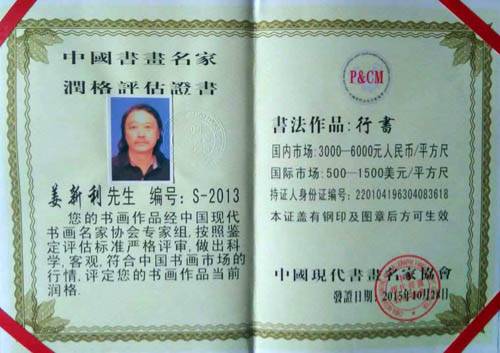 中國書畫名家
潤格評估證書
姜新利先生 编号: S-2013
您的书画作品经中国现代
书画名家协会专家组,按照鉴
定评估标准严格评审,做出科
学,客观,符合中国书画市场的
行情,评定您的书画作品当前
润格.
P&CM
書法作品:行書
国内市场:3000-6000元人民币/平方尺
国际市场:500-1500美元/平方尺
持证人身份证编号:220104196304083618
本证盖有钢印及图章后方可生效
中國現代書畫名家協會
發證日期:2015年10月28日